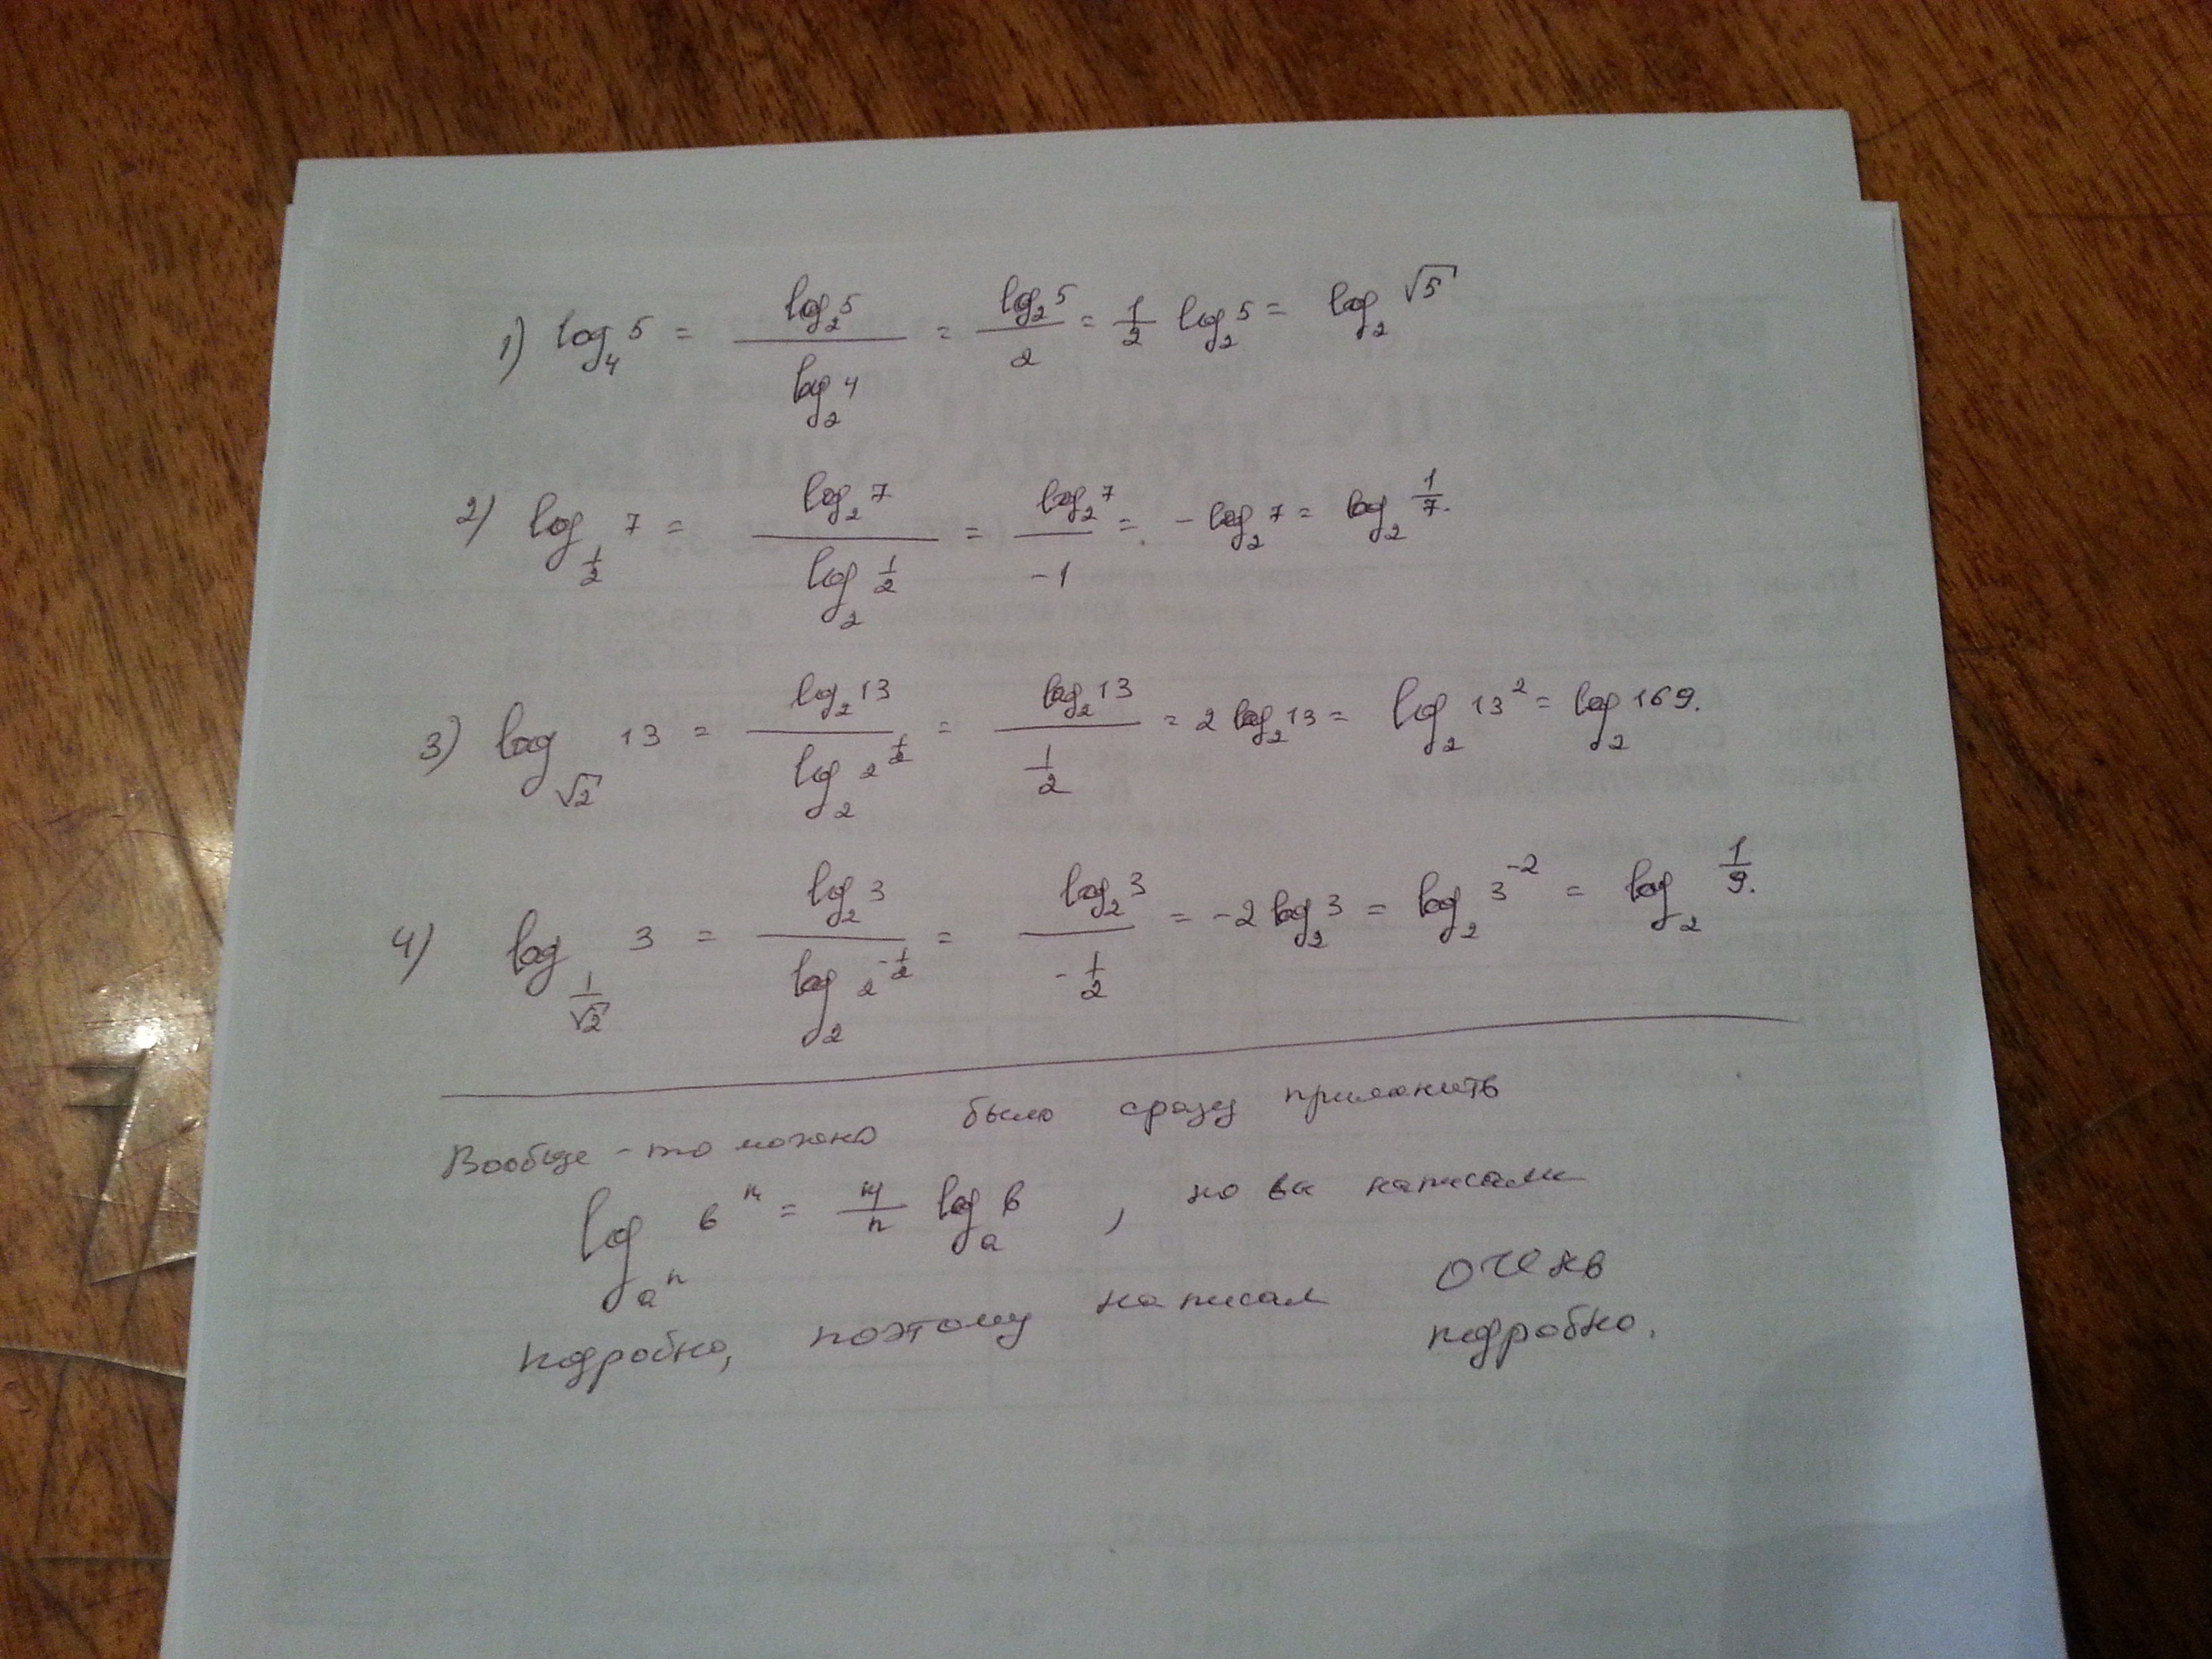 1) log₄ 5 = log₂ 5 / log₂ 4 = log₂ 5 / 2 = 1/2 log₂ 5 = log₂ √5
2) log_{1/2} 7 = log₂ 7 / log₂ 1/2 = log₂ 7 / -1 = - log₂ 7 = log₂ 1/7.
3) log_{√2} 13 = log₂ 13 / log₂ 2^{1/2} = log₂ 13 / 1/2 = 2 log₂ 13 = log₂ 13² = log₂ 169.
4) log_{1/√2} 3 = log₂ 3 / log₂ 2^{-1/2} = log₂ 3 / -1/2 = -2 log₂ 3 = log₂ 3^{-2} = log₂ 1/9.
Вообще-то можно было сразу применить
log_{aⁿ} bᵐ = m/n logₐ b, но вы написали
подробно, поэтому написал очень
подробно.